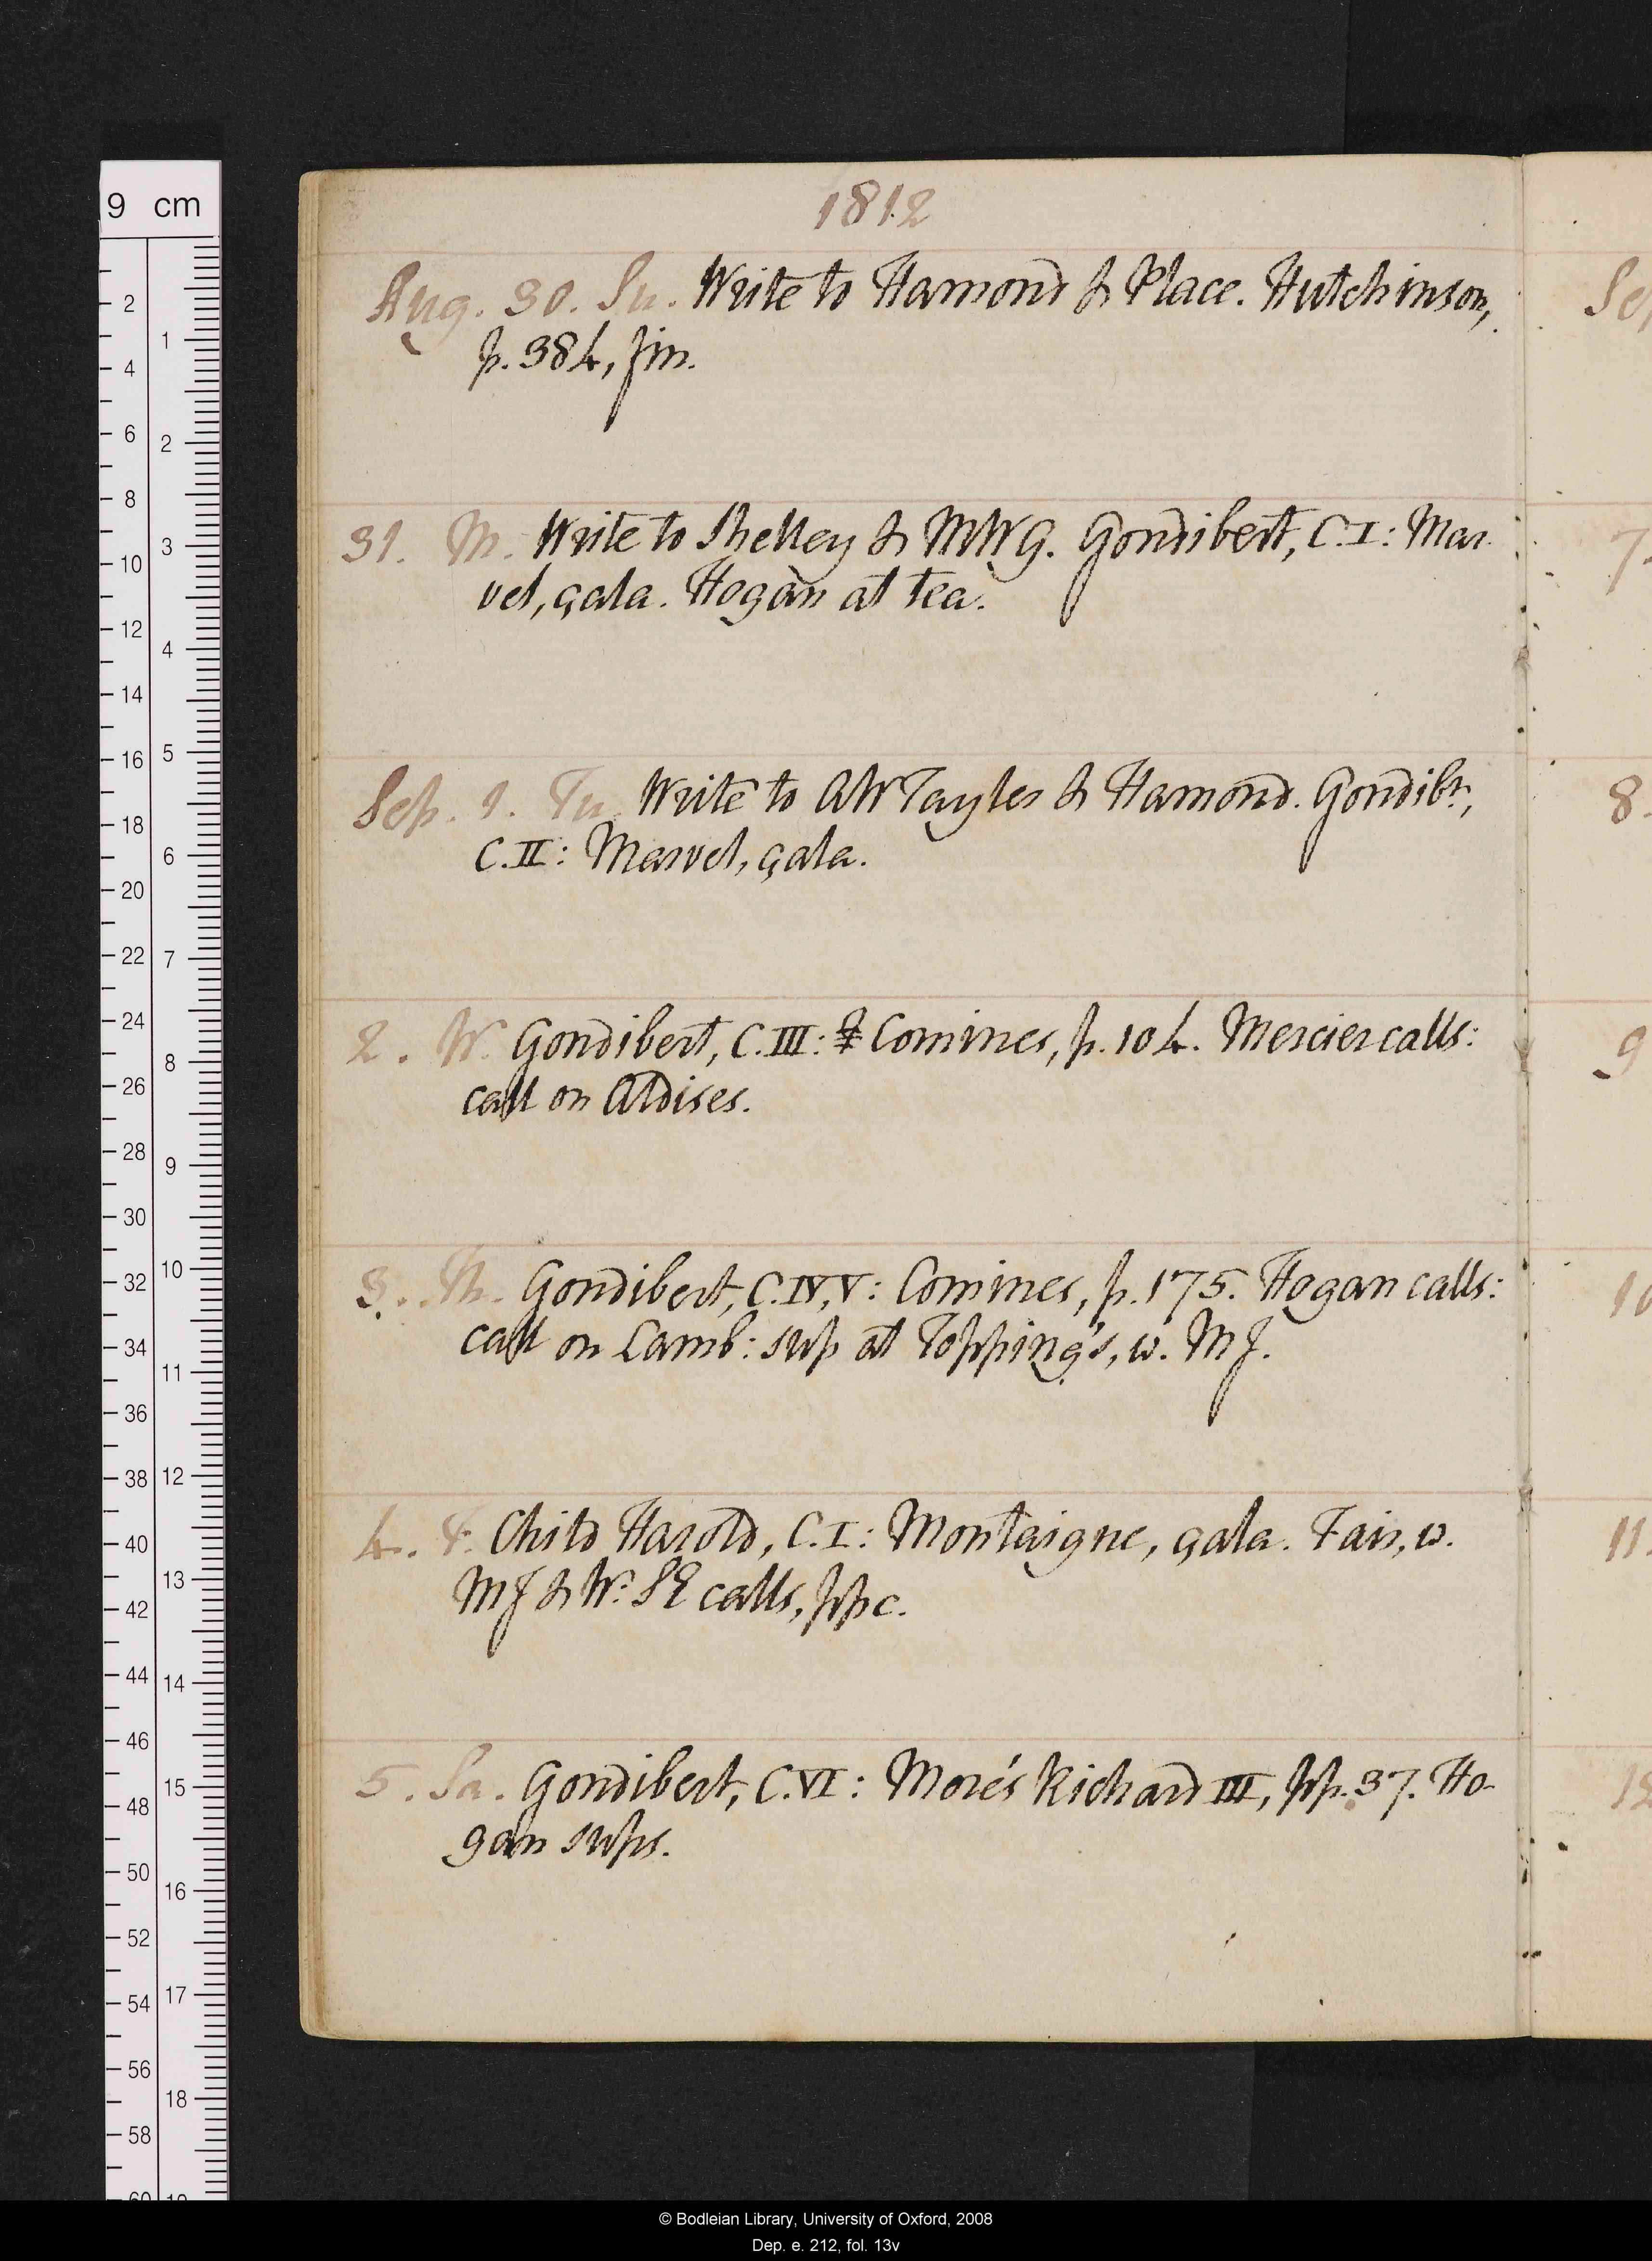 1812
Aug. 30. Su. Write to Hamond & Place. Hutchinson,
p. 384, fin.
31. M. Write to Shelley & MWG. Gondibert, C. I: Mar-
vel, çala. Hogan at tea.
Sep. 1. Tu. Write to AW Tayler & Hamond. Gondibt,
C. II: Marvel, çala.
2. W. Gondibert, C. III: Comines, p. 104. Mercier calls:
call on Aldises.
3. Th. Gondibert, C. IV, V: Comines, p. 175. Hogan calls:
call on Lamb: sup at Topping's, w. MJ.
4. F. Child Harold, C. I: Montaigne, çala. Fair, w.
MJ & W. SE calls, ppc.
5. Sa. Gondibert, C. VI: More's Richard III, pp. 37. Ho-
gan sups.
Sep
7.
8.
9
10
11.
12
9 cm
2
4
6
8
10
12
14
16
18
20
22
24
26
28
30
32
34
36
38
40
42
44
46
48
50
52
54
56
58
60
1
2
3
4
5
6
7
8
9
10
11
12
13
14
15
16
17
18
19
© Bodleian Library, University of Oxford, 2008
Dep. e. 212, fol. 13v